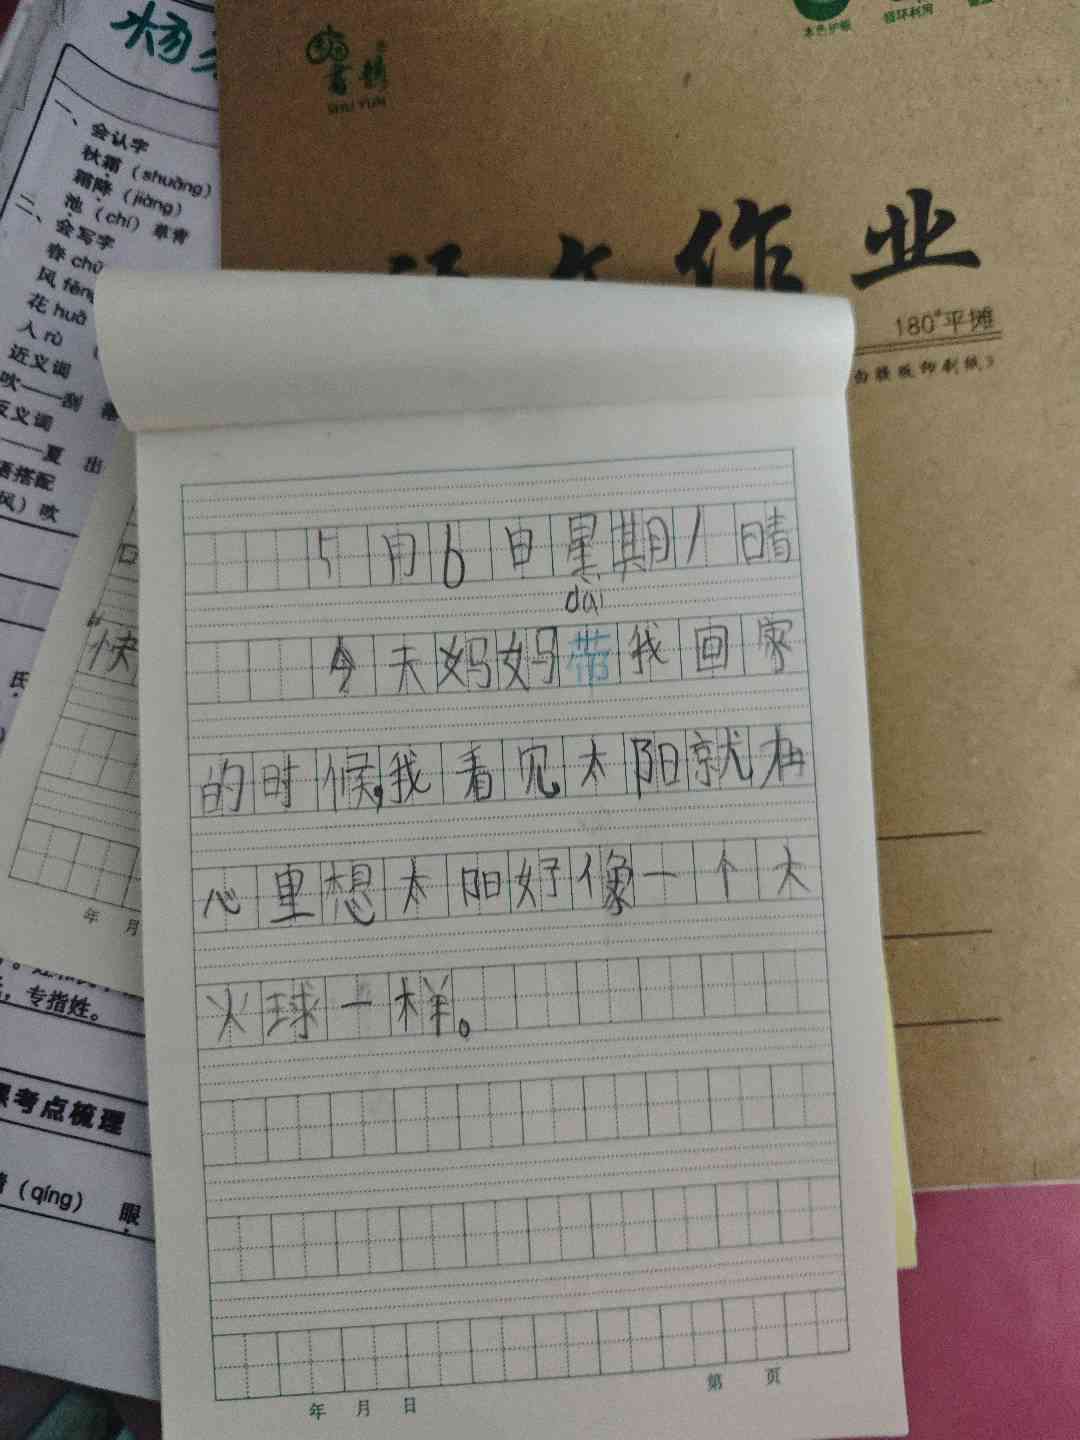 杨
一、会认字
秋霜（shuāng）
霜降（jiàng）
池（chí）草青
二、会写字
春 chū
风 fēng
花 huā
人 rù
近义词
吹——刮
反义词
——夏 出
语搭配
风）吹
书韵
SHU YUN
本色护眼
循环利用
作业
180°平摊
5月6日星期1晴
dai
今天妈妈带我回家
的时候,我看见太阳就再
心里想太阳好像一个大
火球一样。
年 月 日
第 页
快
年 月
，专指姓。
课考点梳理
睛（qíng） 眼